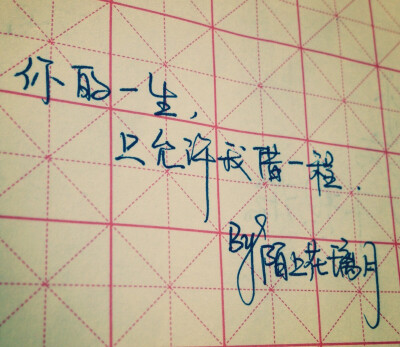 你的一生,
只允许我借一程.
By 陌上花璃月